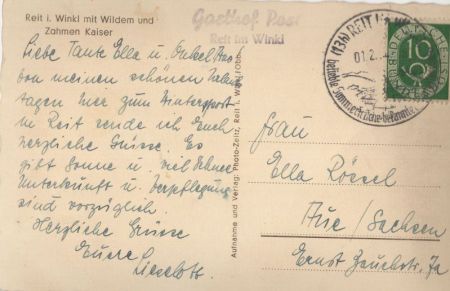 Reit i. Winkl mit Wildem und
Zahmen Kaiser
Gasthof Post
Reit im Winkl
(13b) REIT I.
01.2.
DEUTSCHE
BUNDESPOST
10
Liebe Tante Ella u. Onkel
von meinen schönen
tagen hier zum Wintersport
in Reit sende ich Euch
herzliche Grüsse. Es
gibt Sonne u. viel Schnee
Unterkunft u. Verpflegung
sind vorzüglich.
Herzliche Grüsse
Euere
Lieselott
Aufnahme und Verlag: Photo-Zeitz, Reit i. Winkl/Obb.
Frau
Ella Rössel
Aue/Sachsen
Ernst Str. 7a